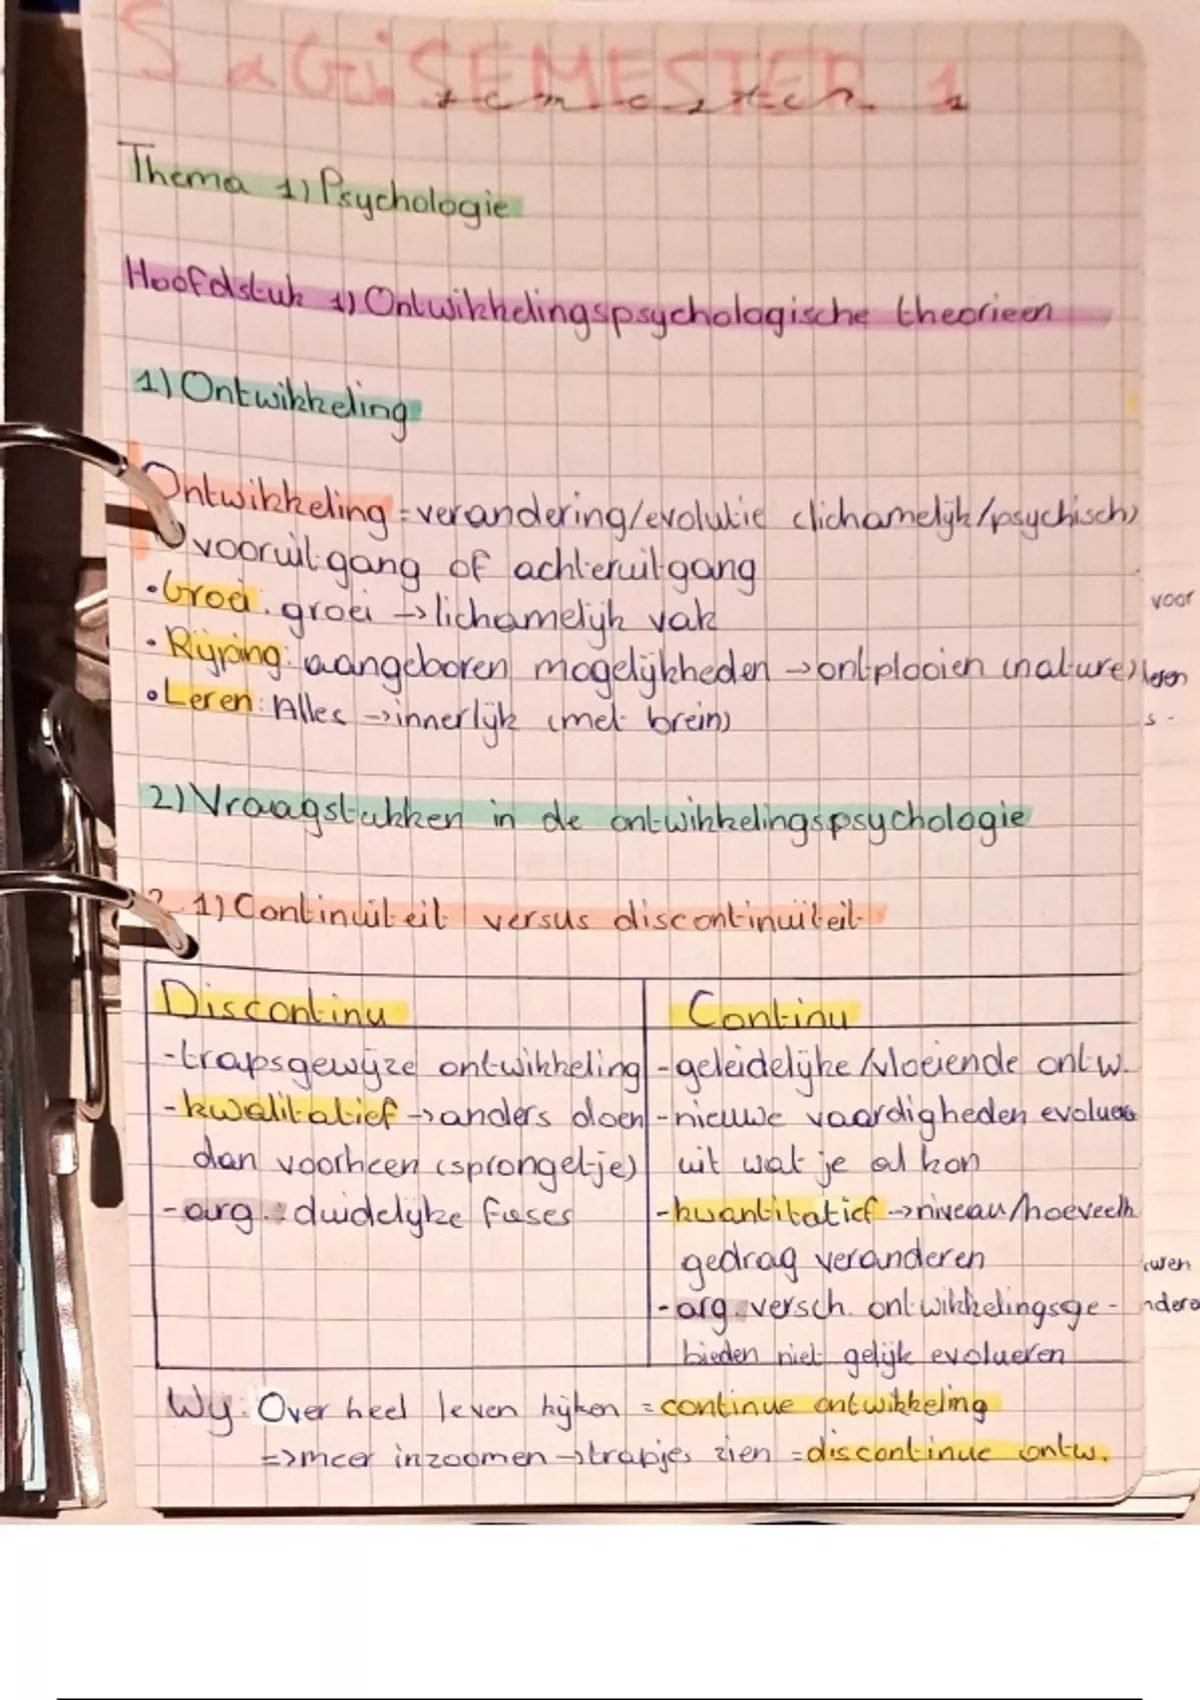 SaGi SEMESTER 1
semester 1
Thema 1) Psychologie
Hoofdstuk 1) Ontwikkelingspsychologische theorieen
1) Ontwikkeling
Ontwikkeling = verandering/evolutie (lichamelijk/psychisch)
vooruitgang of achteruitgang
• Groei: groei → lichamelijk vak
• Rijping: aangeboren mogelijkheden → ontplooien (nature)
• Leren: Alles → innerlijk (met brein)
2) Vraagstukken in de ontwikkelingspsychologie
2.1) Continuïteit versus discontinuïteit
Discontinu
- trapsgewijze ontwikkeling
- kwalitatief → anders doen
dan voorheen (sprongetje)
- arg.: duidelijke fases
Continu
- geleidelijke/vloeiende ontw.
- nieuwe vaardigheden
uit wat je al kon
- kwantitatief → niveau/hoeveelh
gedrag veranderen
- arg. versch. ontwikkelingsge-
bieden niet gelijk evolueren
Wij: Over heel leven kijken = continue ontwikkeling
=> meer inzoomen → trapjes zien = discontinue ontw.
voor
leren
s.
wen
ndere